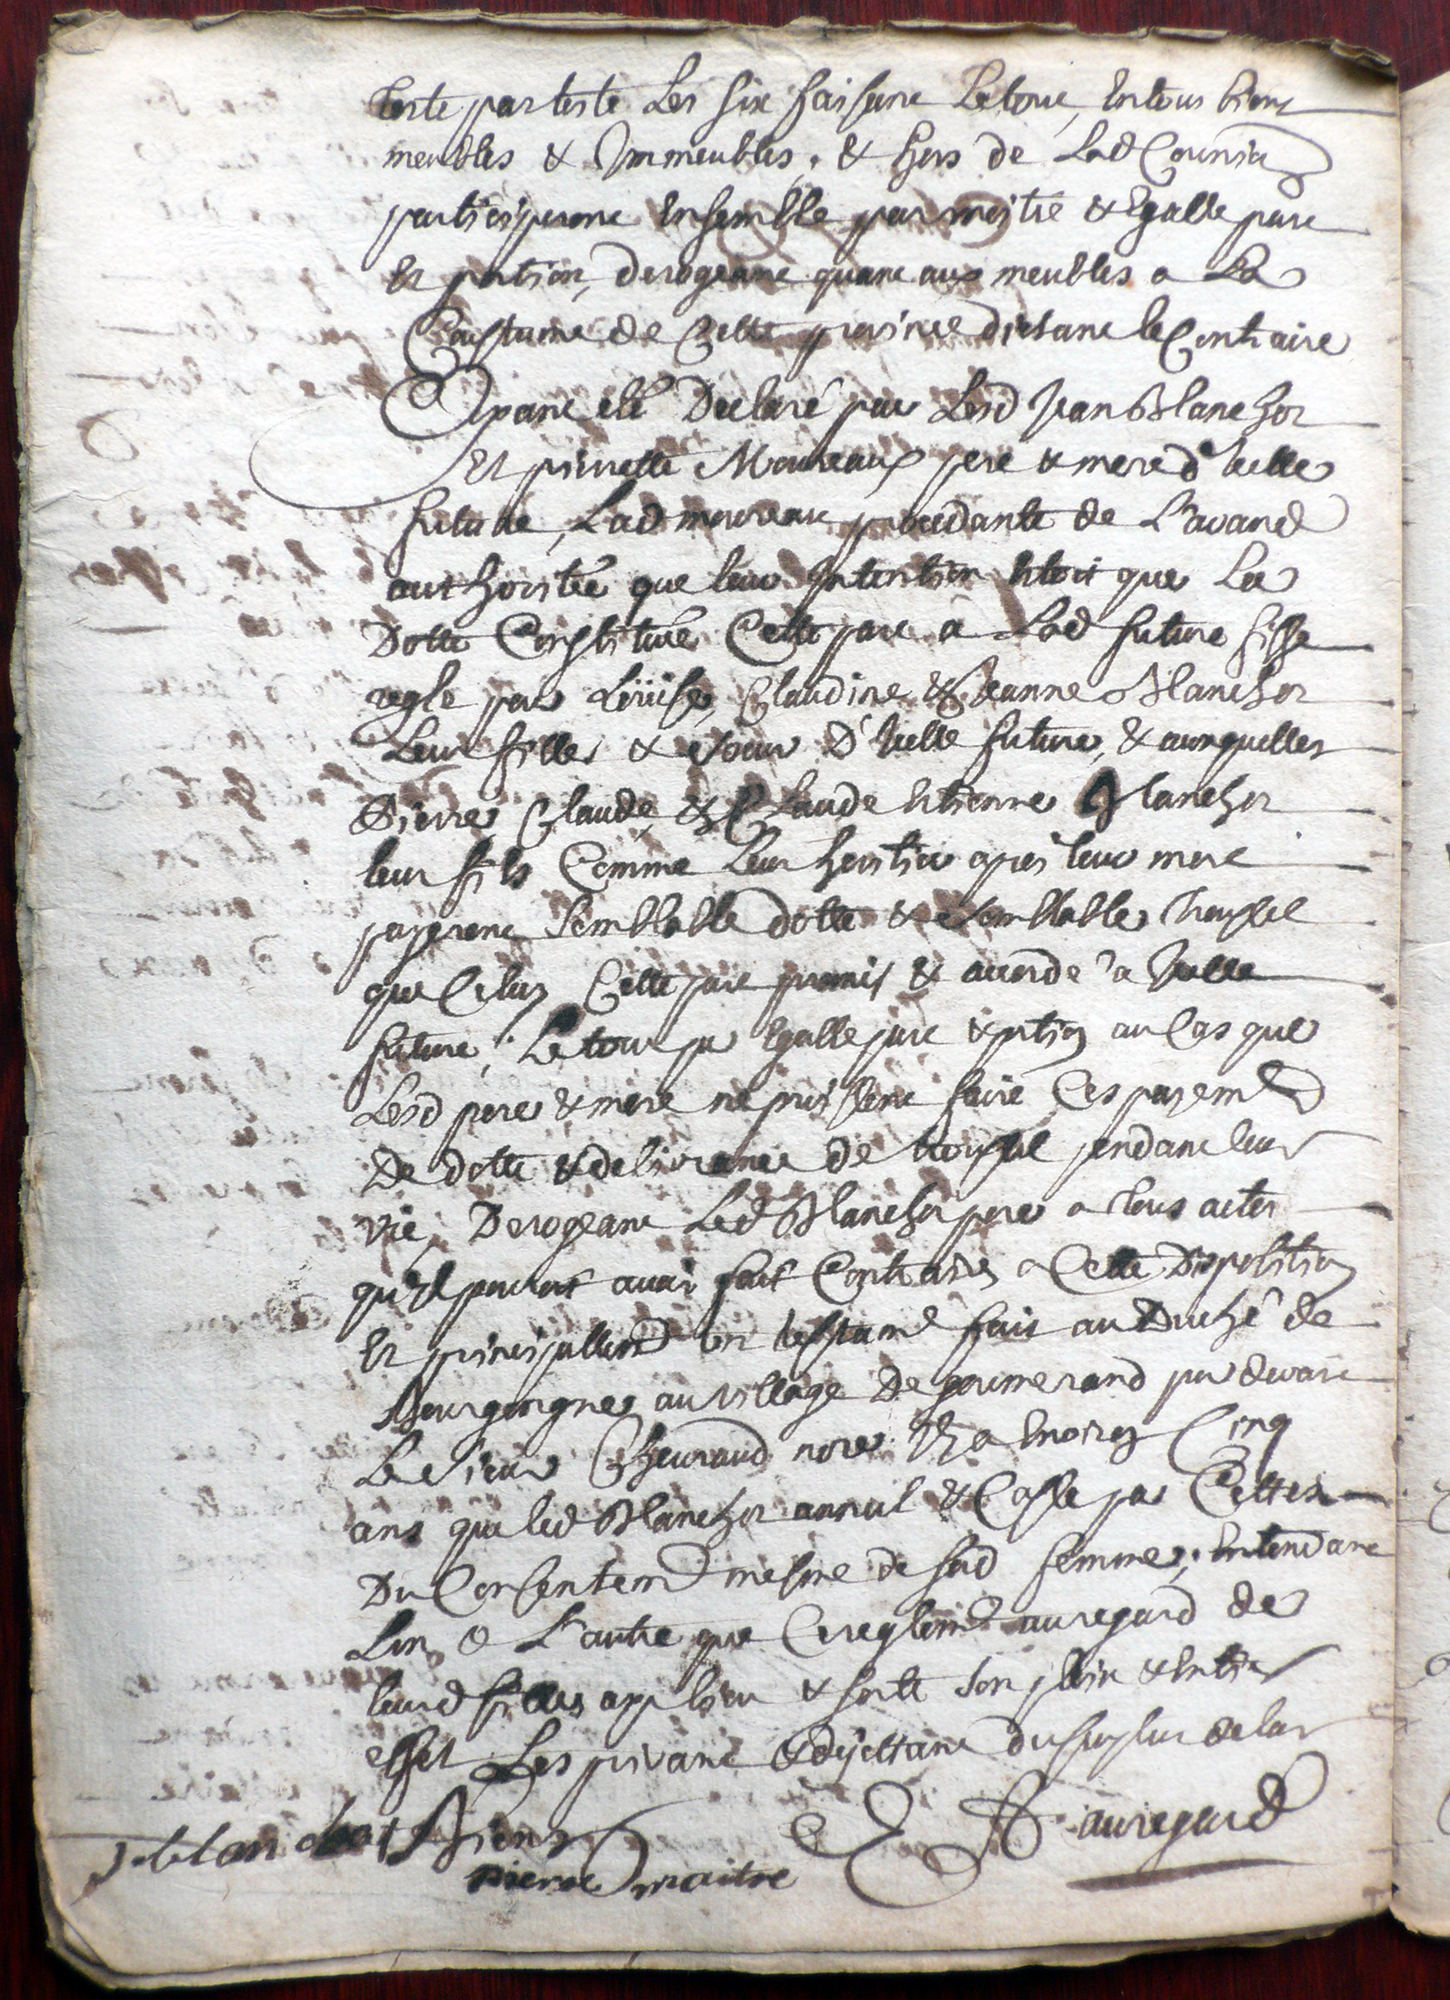 teste par teste Les six faisant Letout, En tous biens
meubles & Immeubles, & hors de Lad Comunion
participeront Ensemble par moitié & Egalle part
Et portion, derogeant quant aux meubles a La
Coustume de Cette province dictant le Contraire
Ayant esté Declaré par Lesd Jean Blanchot
Et pierrette Moureaux pere & mere d'Icelle
future, Lad moureaux procedante de L'avand
authoritée que leur Intention Estoit que La
Dotte Constituée Cette part a Lad future fisse
regle pour Loüise, Claudine & Jeanne Blanchot
Leur filles & soeur D'Icelle future, & ausquelles
Pierre, Claude, & Claude Estienne Blanchot
leur fils Comme Leur heritier apres leur mort
payeront Semblable dotte & semblable troussel
que Celuy Cette part promis & accordé a Icelle
future, Letout par Egalle part & portion au Cas que
Lesd pere & mere ne puissent faire Ces payemt
De dotte & delivrance de troussel pendant leur
vie, Derogeant Led Blanchot pere a tous actes
qu'il pouroit avoir fait Contraire a Cette Disposition
Et principallemt un testamt fait au Duché de
Bourgongne au village De pourmerand par devant
Le Sieur Cheuraud nore Il y a Environ Cinq
ans que led Blanchot annul & Casse par Cettes
Du Consentemt mesme de sad femme, Entendant
Lun & L'autre que Ce reglemt au regard de
leursd filles aye lieu & sorte son plein & Entier
effet Les privant & dejettant du surplus de la
J blanchot Biens
Pierre maitre
Beauregard